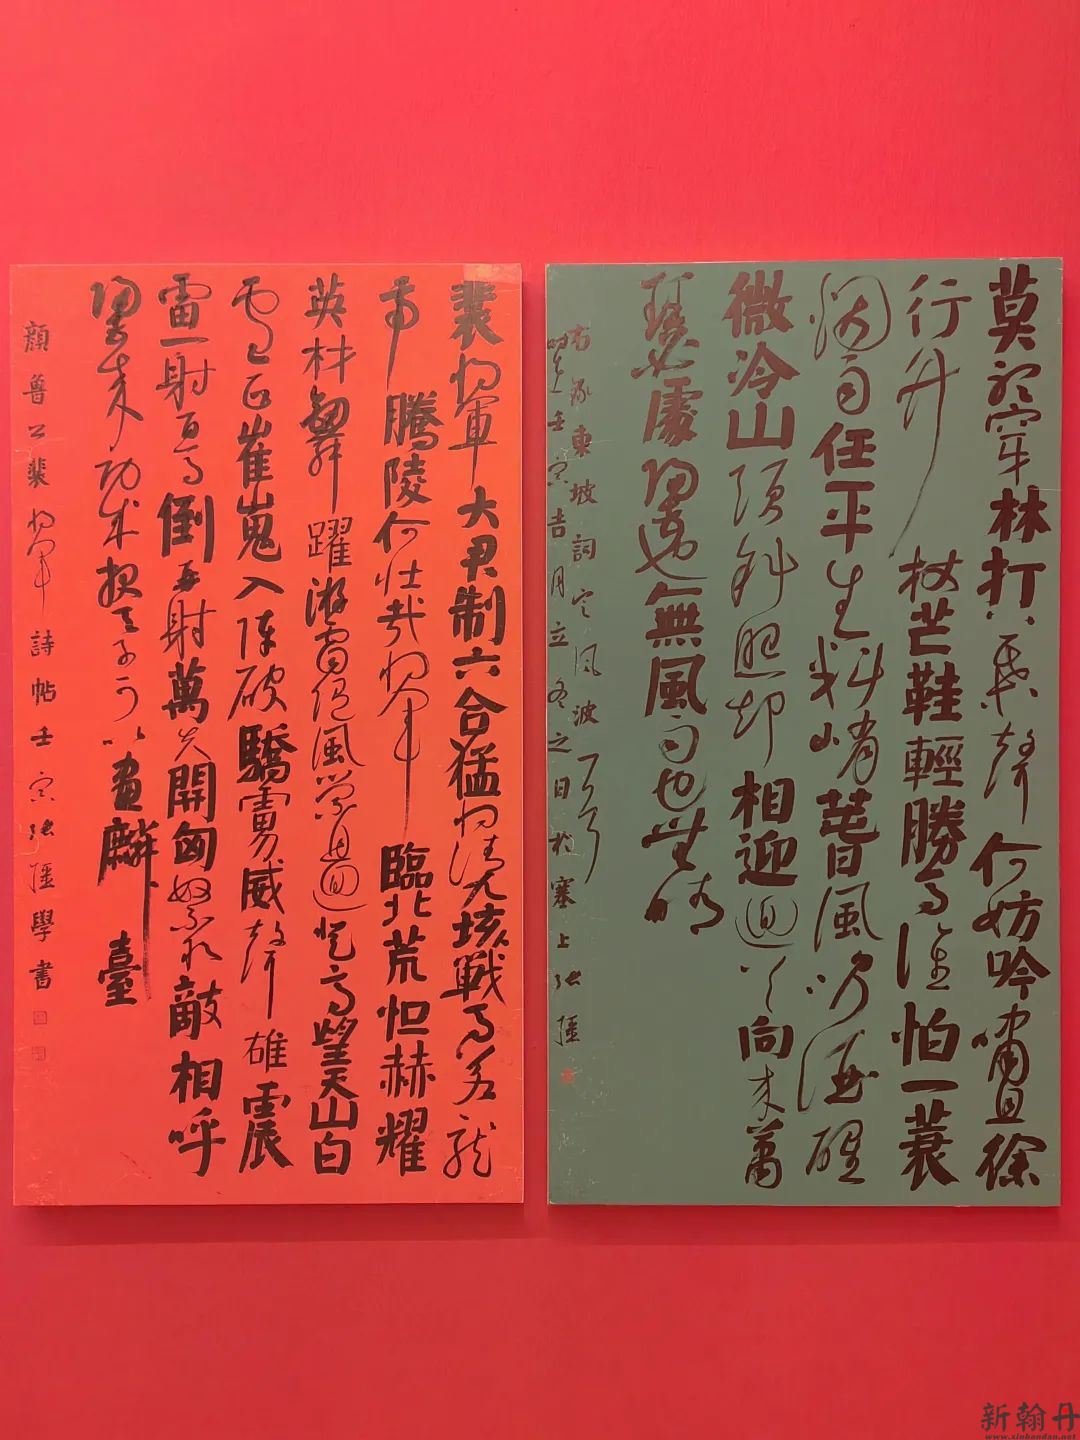 莫聽穿林打葉聲何妨吟嘯且徐
行竹杖芒鞋輕勝馬誰怕一蓑
烟雨任平生料峭春風吹酒醒
微冷山頭斜照却相迎回首向來蕭
瑟處歸去也無風雨也無晴
右录東坡詞定風波一首
時在壬寅吉月立冬之日於塞上張疆
裴將軍大君制六合猛將清九垓戰馬若龍
虎騰陵何壯哉將軍臨北荒怛赫耀
英材劍舞躍游雷隨風縈且迴登高望天山白
雲正崔嵬入陣破驕虜威聲雄震
雷一射百馬倒再射萬夫開匈奴不敢敵相呼
歸去來功成報天子可以畫麟臺
顏魯公裴將軍詩帖壬寅張疆學書
新翰丹
www.xinhandan.net